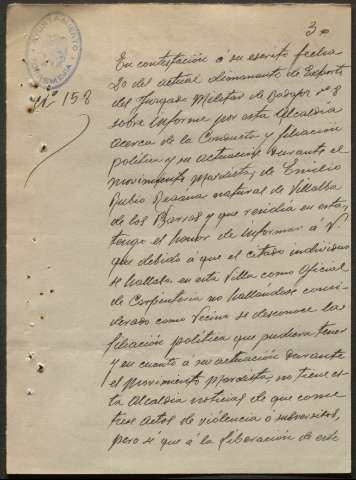 3
AYUNTAMIENTO
Nº 158
En contestación á su escrito fecha
20 del actual dimanante de Exhorto
del Juzgado Militar de Badajoz nº 8
sobre informe por esta Alcaldia
acerca de la Conducta y filiación
politica y su actuación durante el
movimiento Marxista, de Emilio
Rubio natural de Villalba
de los Barros y que residia en esta,
tengo el honor de informar á V.
que debido a que el citado individuo
se hallaba en esta Villa como oficial
de Carpinteria no hallandose consi-
derado como Vecino se desconoce la
filiación politica que pudiera tener
y en cuanto á su actuación durante
el Movimiento Marxista, no tiene es-
ta Alcaldia noticias de que come-
tiese actos de violencia ó subversivos,
pero si que á la liberación de este